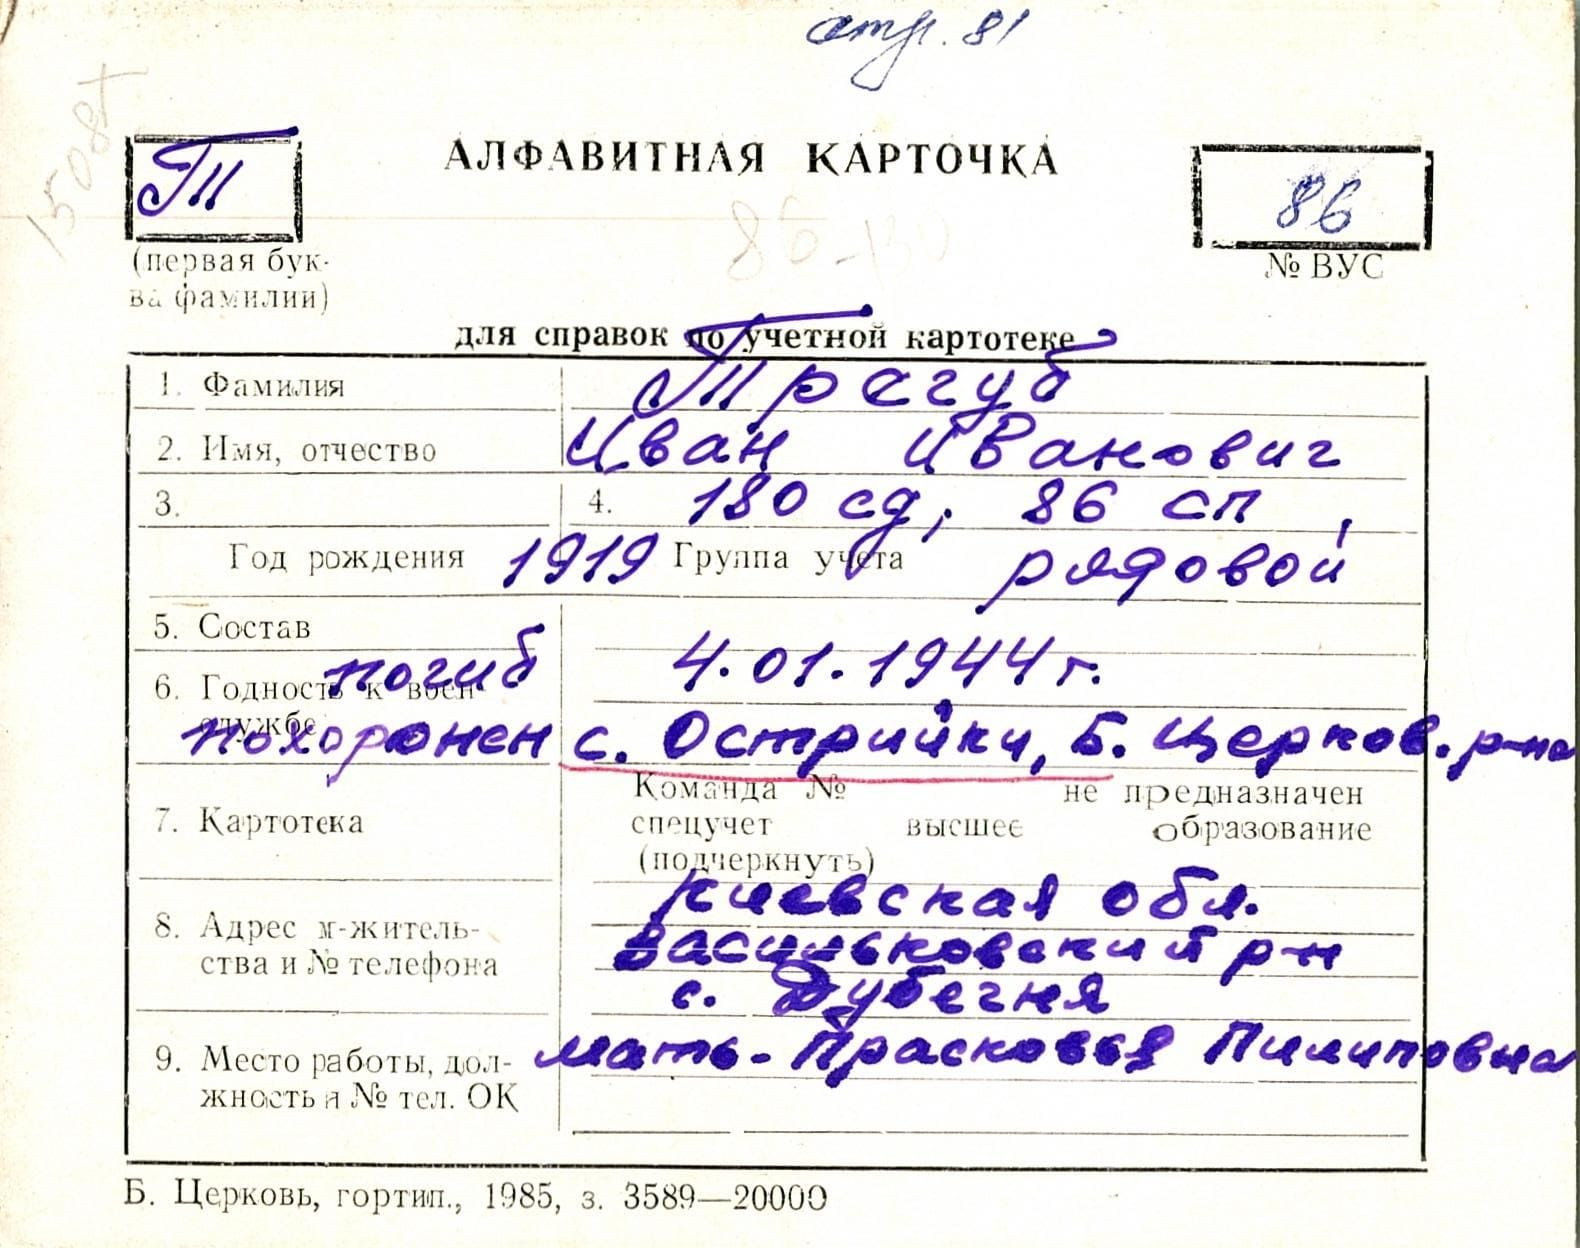 стр. 81
15087
Т
АЛФАВИТНАЯ КАРТОЧКА
86
86-130
(первая бук-
ва фамилии)
№ ВУС
для справок по учетной картотеке
1. Фамилия Трегуб
2. Имя, отчество Иван Иванович
3. 4. 180 сд, 86 сп,
Год рождения 1919 Группа учета рядовой
5. Состав
погиб 4.01.1944 г.
6. Годность к воен-
службе
похоронен с. Острийки, Б. Церков. р-на
Команда № не предназначен
7. Картотека спецучет высшее образование
(подчеркнуть)
Киевская обл.
8. Адрес м-житель- Васильковский р-н
ства и № телефона с. Дубечня
9. Место работы, дол- мать - Прасковья Пилиповна
жность и № тел. ОК
Б. Церковь, гортип., 1985, з. 3589—20000